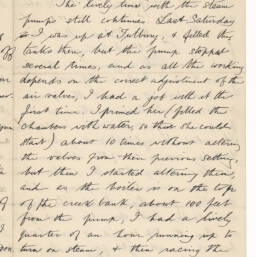 The lively time with the steam
pump still continues Last Saturday
I was up at Tilbury, & filled the
tanks then, but the pump stopped
several times, and as all the working
depends on the correct adjustment of the
air valves, I had a job with it the
first time. I primed her (filled the
chambers with water, so that she could
start) about 10 times without altering
the valves from their previous setting,
but then I started altering them,
and as the boiler is on the top
of the creek bank, about 100 feet
from the pump, I had a lively
quarter of an hour running up to
turn on steam, & then racing the